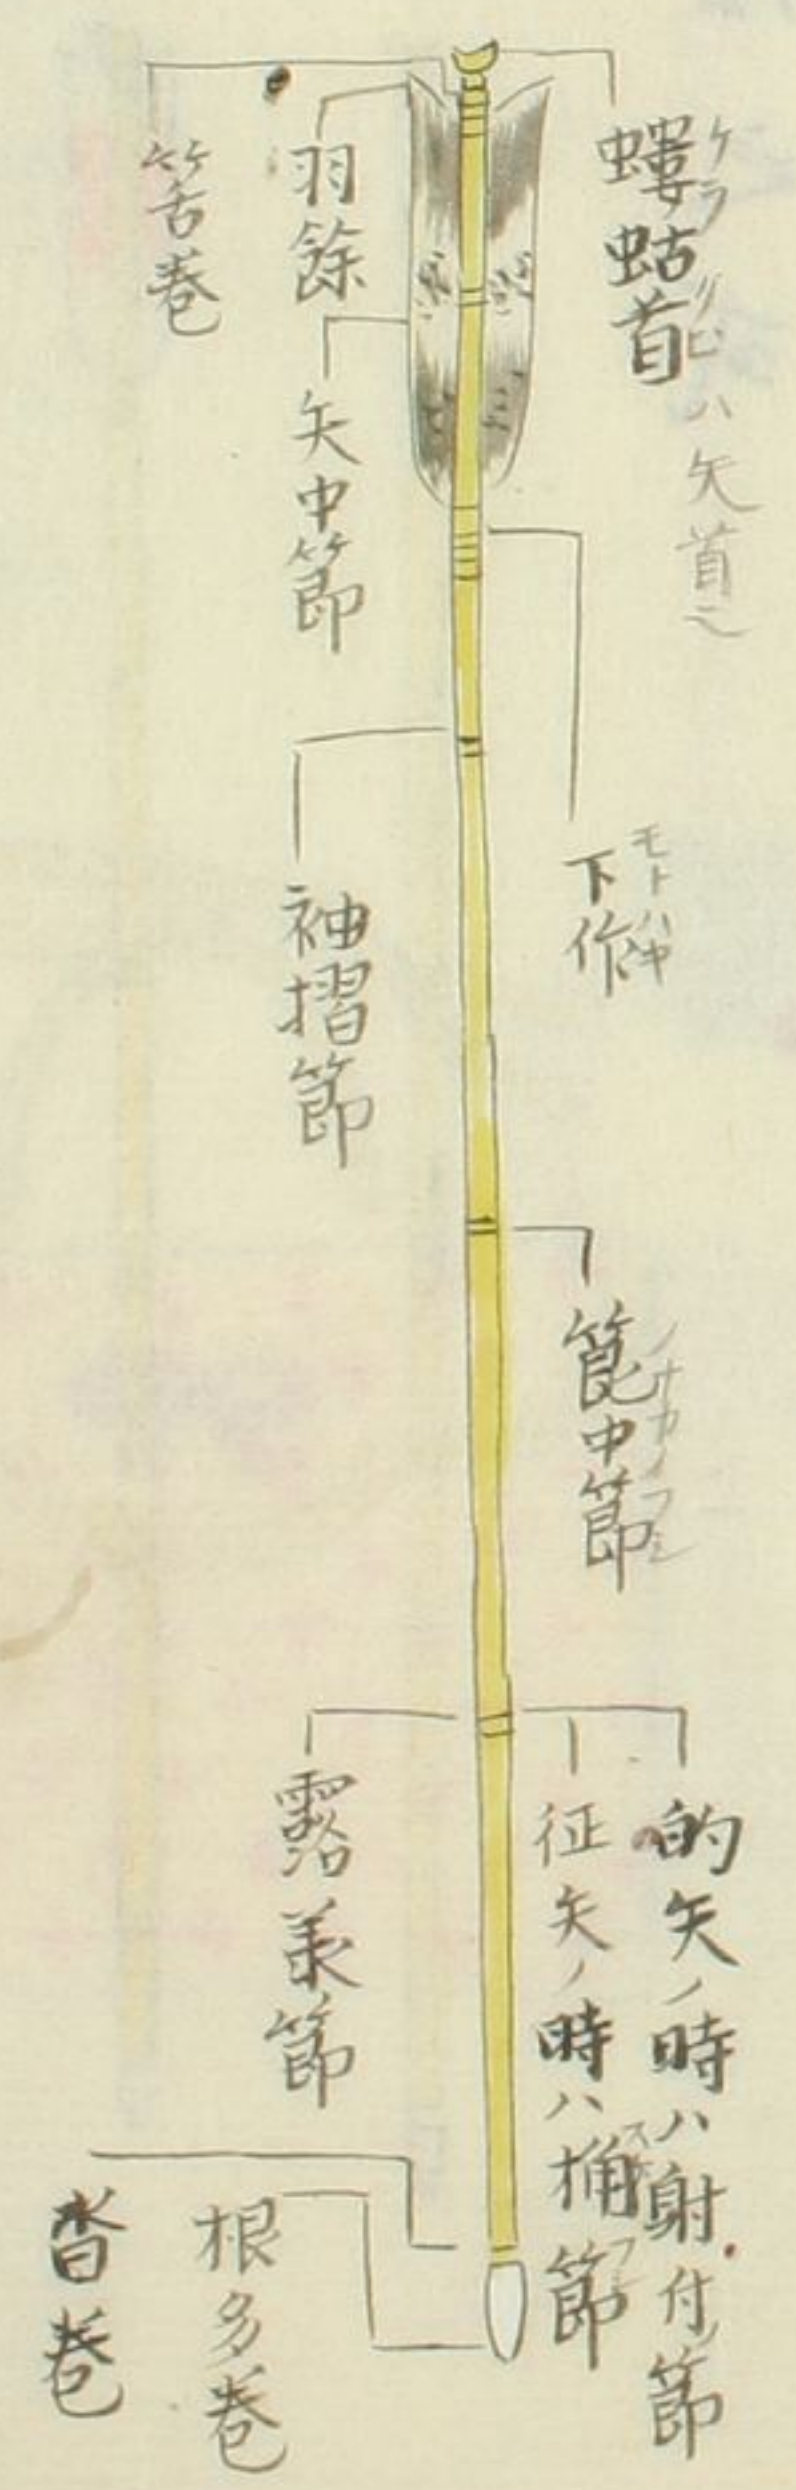 螻蛄首
ケラクビハ矢首也
筈巻
羽餘
矢中節
下作
モトハキ
袖摺節
箆中節
ノナカノフシ
的矢ノ時ハ射付ノ節
征矢ノ時ハ桶節
露羕節
根多巻
沓巻